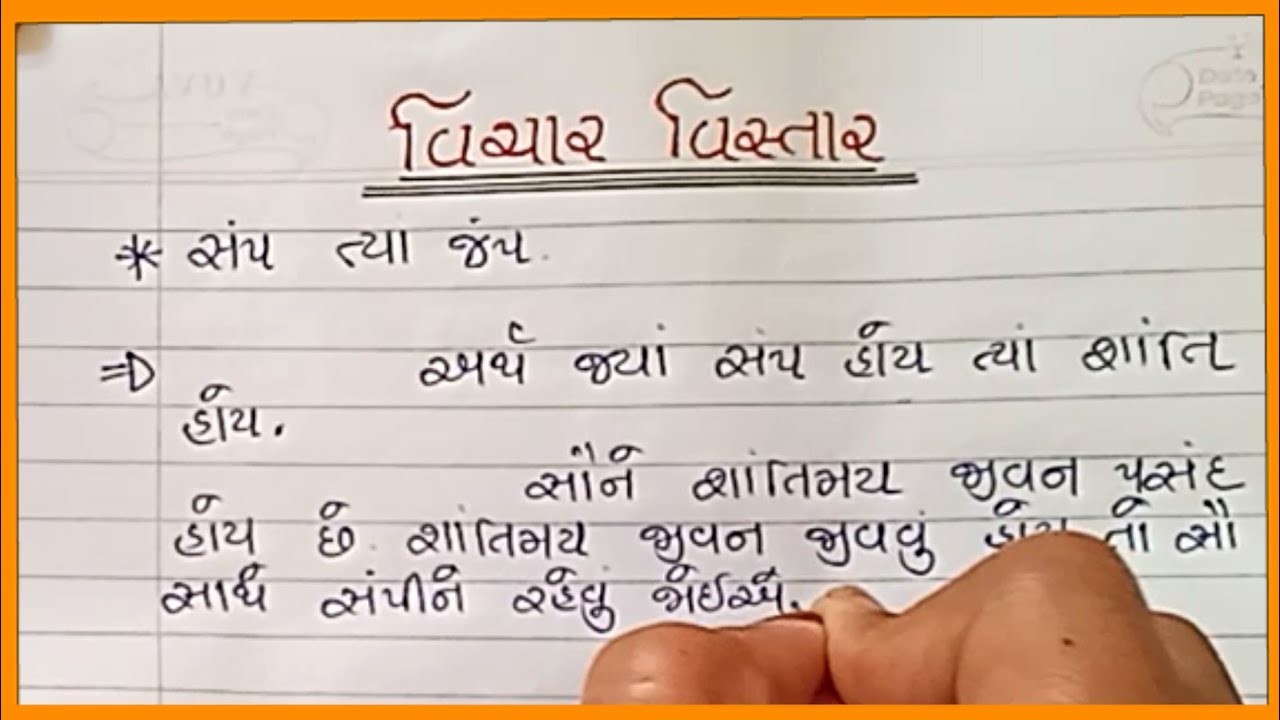 વિચાર વિસ્તાર
Date
Page
* સંપ ત્યા જંપ.
⇒ અર્થ જ્યાં સંપ હોય ત્યાં શાંતિ
હોય.
સૌને શાંતિમય જીવન પસંદ
હોય છે. શાંતિમય જીવન જીવવું હોય તો સૌ
સાથે સંપીને રહેવું જોઈએ.